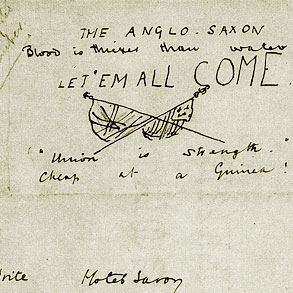 THE ANGLO-SAXON
Blood is thicker than water
LET 'EM ALL COME.
"Union is strength."
Cheap at a Guinea!